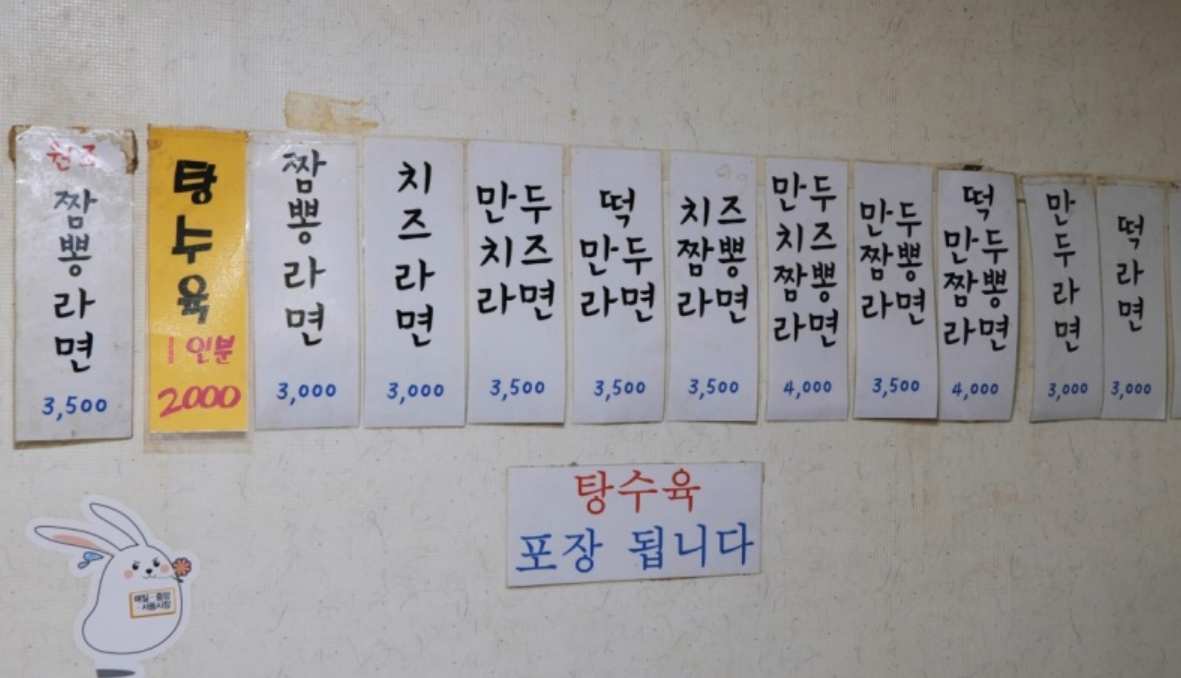 원조
짬뽕
라면
3,500
탕수육
1인분
2000
짬뽕
라면
3,000
치즈
라면
3,000
만두
치즈
라면
3,500
떡
만두
라면
3,500
치즈
짬뽕
라면
3,500
만두
치즈
짬뽕
라면
4,000
만두
짬뽕
라면
3,500
떡
만두
짬뽕
라면
4,000
만두라면
3,000
떡라면
3,000
탕수육
포장 됩니다
매일·중앙
·서동시장